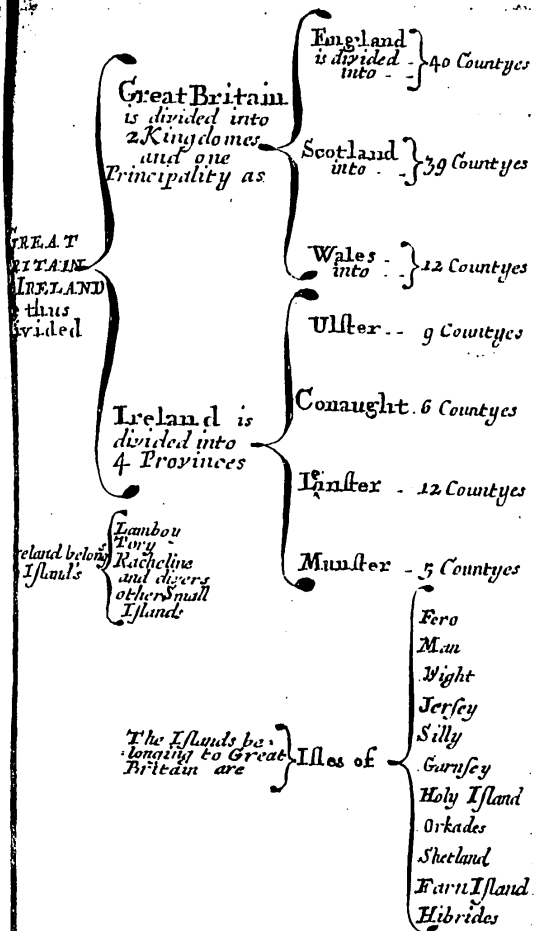 GREAT
BRITAIN
IRELAND
thus
divided
Great Britain
is divided into
2 Kingdomes
and one
Principality as
England
is divided
into
40 Countyes
Scotland
into
39 Countyes
Wales
into
12 Countyes
Ireland is
divided into
4 Provinces
Ulſter -- 9 Countyes
Conaught. 6 Countyes
Leinſter - 12 Countyes
Munſter - 5 Countyes
reland belongs
Iſlands
Lambou
Tory
Racheline
and divers
other Small
Iſlands
The Iſlands be-
longing to Great
Britain are
Iſles of
Fero
Man
Wight
Jerſey
Silly
Garnſey
Holy Iſland
Orkades
Shetland
Farn Iſland
Hibrides